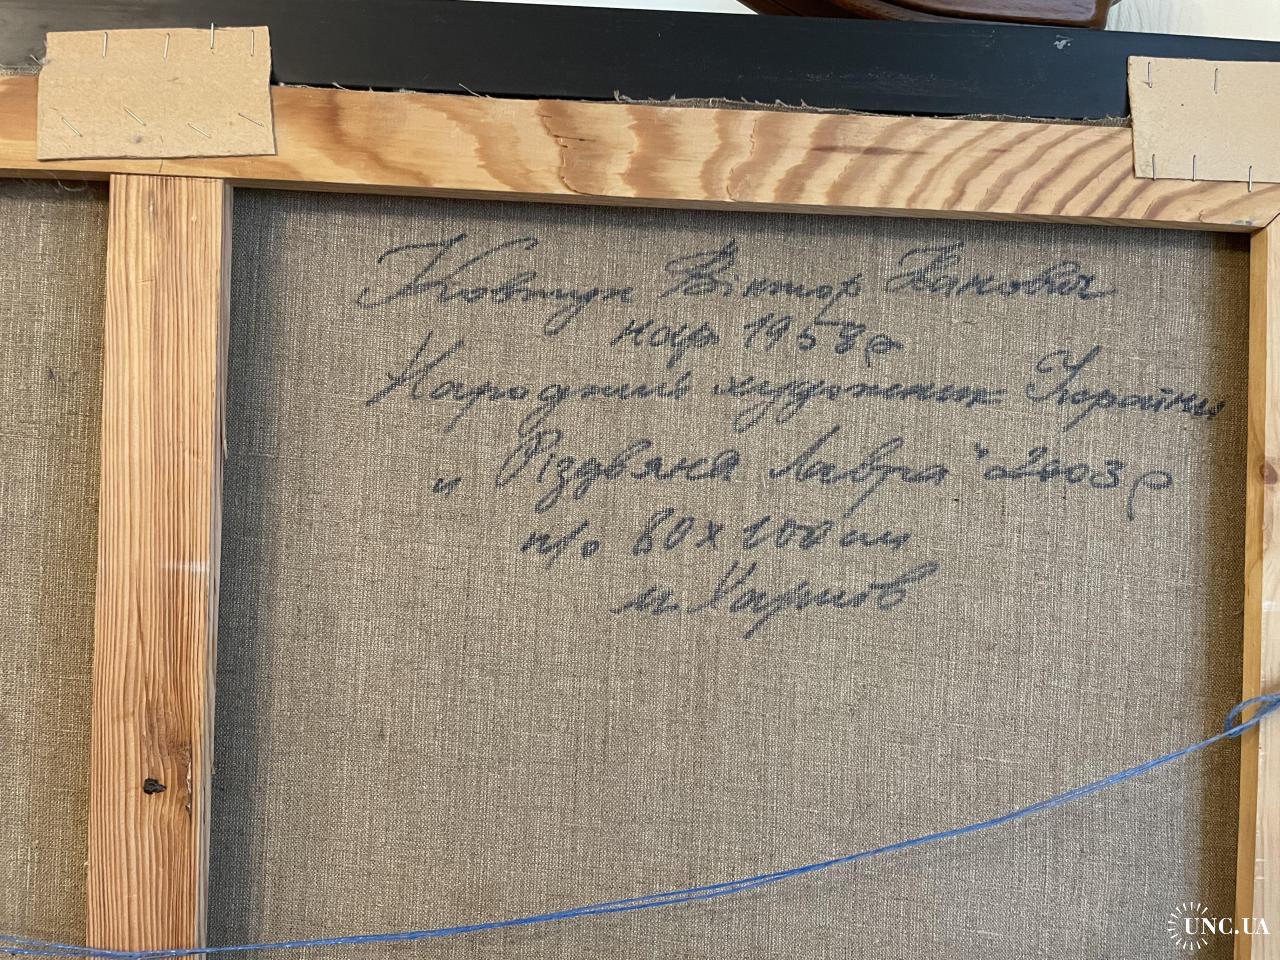 Ковтун Віктор Іванович
нар 1958 р
Народний художник України
„Різдвяна Лавра" 2003 р
п/о 80х100 см
м. Харків
UNC.UA